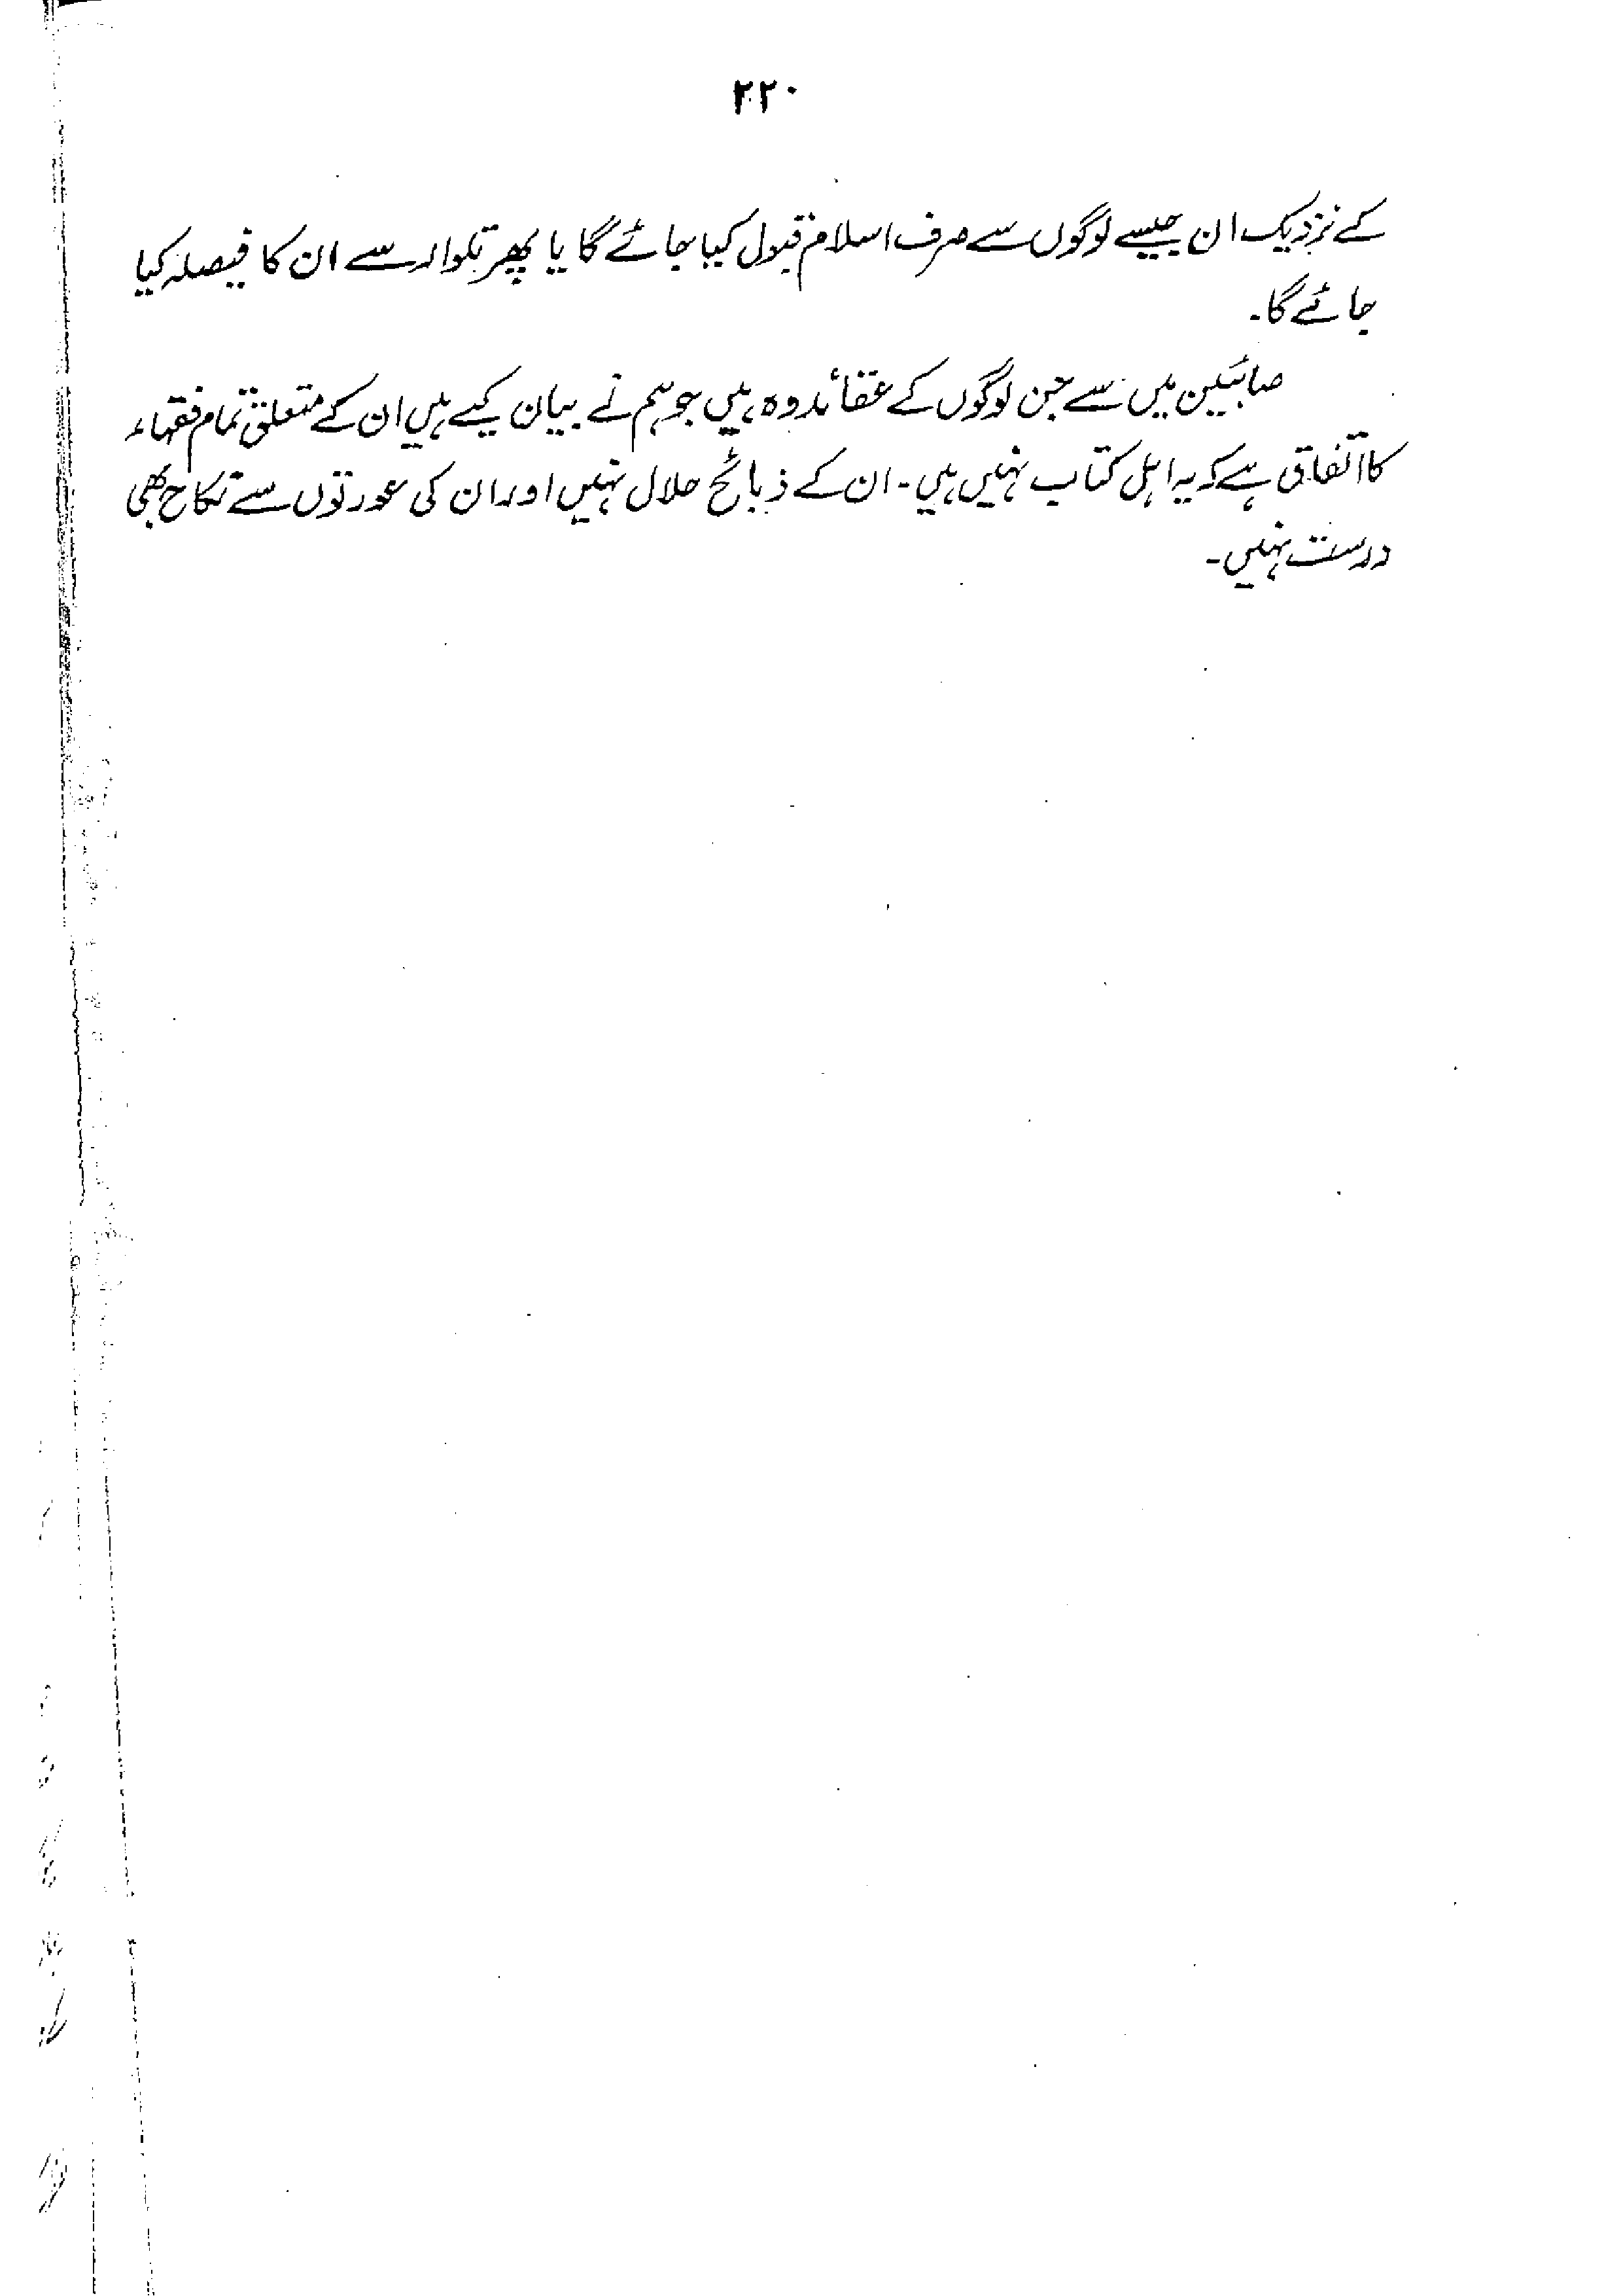 ۲۲۰
کے نزدیک ان جیسے لوگوں سے صرف اسلام قبول کیا جائے گا یا پھر تلوار سے ان کا فیصلہ کیا
جائے گا۔
صابئین میں سے جن لوگوں کے عقائد وہ ہیں جو ہم نے بیان کیے ہیں ان کے متعلق تمام فقہاء
کا اتفاق ہے کہ یہ اہل کتاب نہیں ہیں۔ ان کے ذبائح حلال نہیں اور ان کی عورتوں سے نکاح بھی
درست نہیں۔